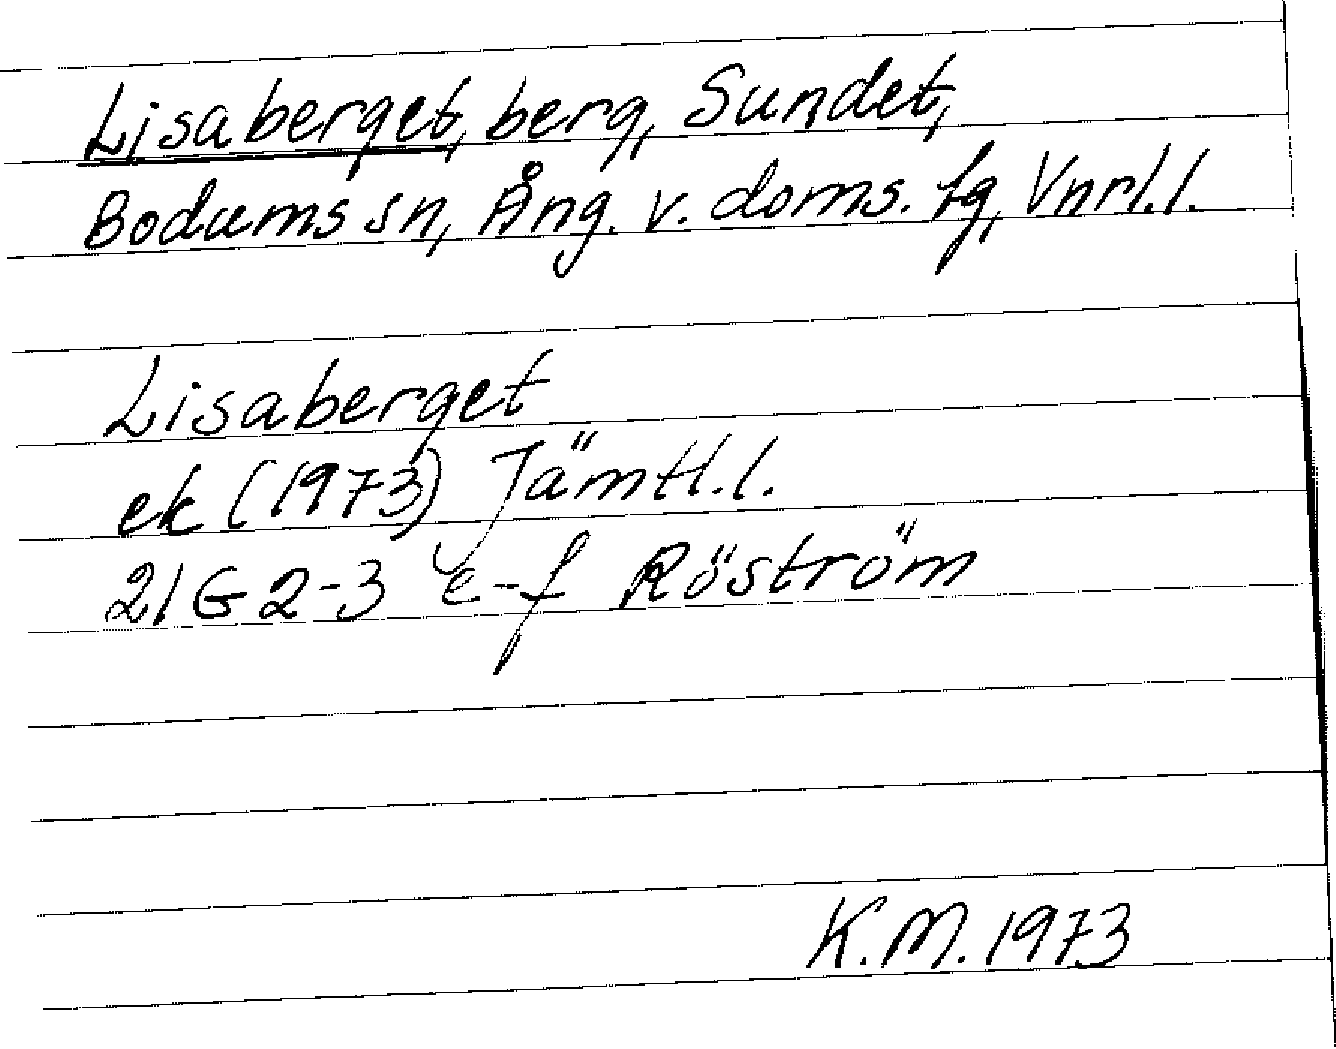 Lisaberget, berg, Sundet,
Bodums sn, Ång. v. doms. fg, Vnrl.l.
Lisaberget
ek (1973) Jämtl.l.
21G 2-3 e-f Röström
K.M. 1973